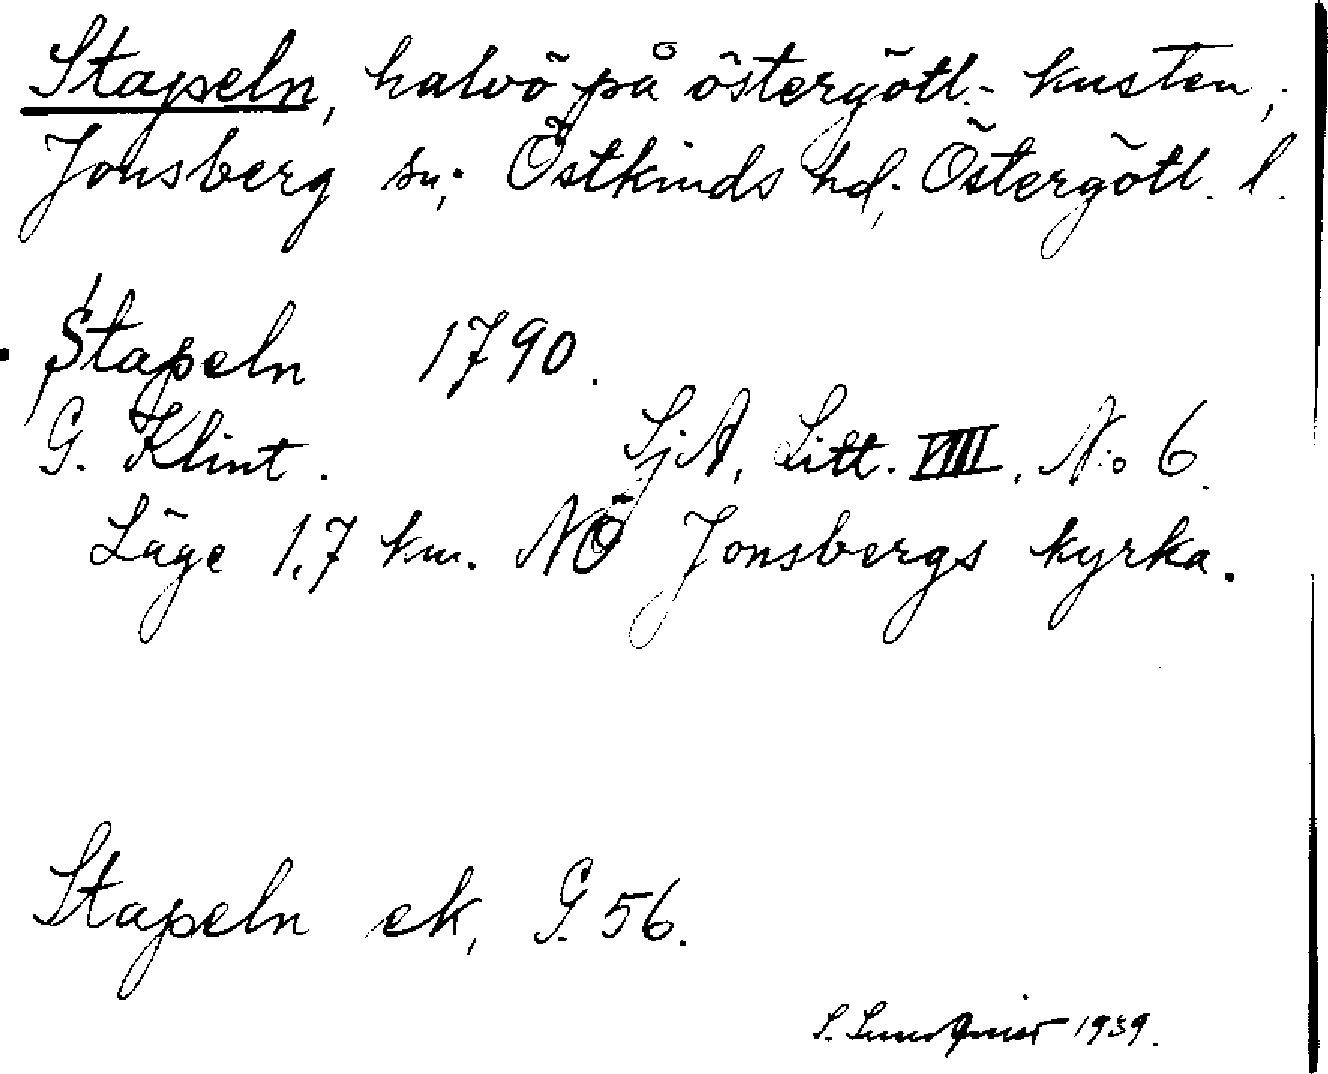 Stapeln, halvö på östergötl.- kusten,
Jonsberg sn; Östkinds hd; Östergötl. l.
Stapeln 1790.
G. Klint. SjA, Litt. VIII, N:o 6.
Läge 1,7 km. NÖ Jonsbergs kyrka.
Stapeln ek, G. 56.
S. Lundqvist 1939.